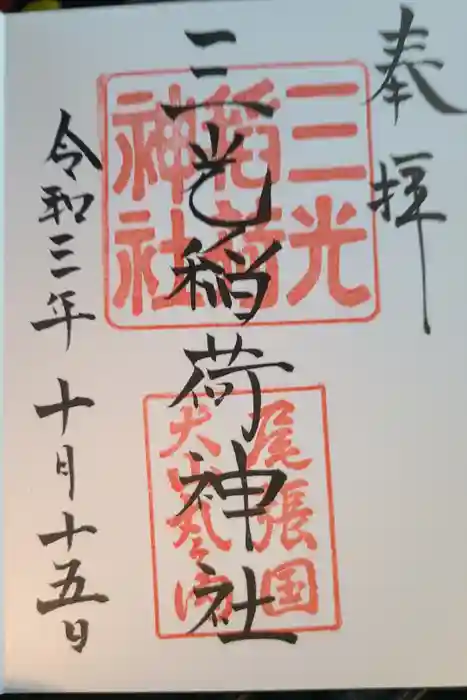 奉拝
三光稲荷神社
令和三年十月十五日
三光
稲荷
神社
尾張国
犬山丸之内